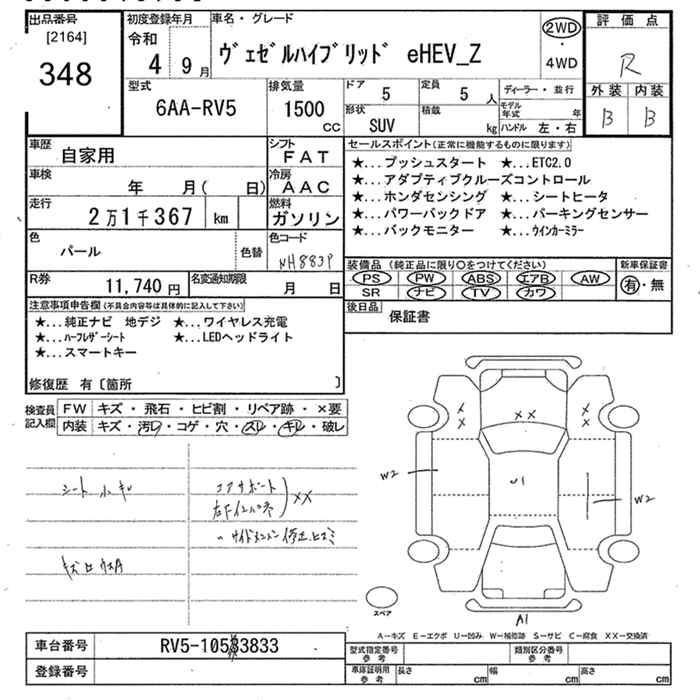 出品番号 初度登録年月 車名・グレード 評価点
[2164] 令和 ヴェゼルハイブリッド eHEV_Z 2WD R
348 4 9月 ・4WD 外装 内装
型式 排気量 ドア 5 定員 5人 ディーラー・並行 B B
6AA-RV5 1500 CC 形状 SUV 積載 kg モデル年式 年
ハンドル 左・右
車歴 自家用 シフト FAT セールスポイント(正常に機能するものに限ります)
★...プッシュスタート ★...ETC2.0
車検 年 月( 日) 冷房 AAC ★...アダプティブクルーズコントロール
★...ホンダセンシング ★...シートヒータ
走行 2万1千367 km 燃料 ガソリン ★...パワーバックドア ★...パーキングセンサー
★...バックモニター ★...ウインカーミラー
色 パール 色替 色コード NH883P
装備品(純正品に限り○をつけてください) 新車保証書
R券 11,740円 名変通知期限 月 日 PS PW ABS エアB AW 有・無
SR ナビ TV カワ
注意事項申告欄(不具合内容等は具体的に記入して下さい) 後日品 保証書
★...純正ナビ 地デジ ★...ワイヤレス充電
★...ハーフレザーシート ★...LEDヘッドライト
★...スマートキー
修復歴 有〔箇所 〕
検査員記入欄 FW キズ・飛石・ヒビ割・リペア跡・×要
内装 キズ・汚レ・コゲ・穴・スレ・キレ・破レ
X X XX X X
シート コアサポート XX
W2 U1 W2
サイドメンバー
スペア
A1
A-キズ E-エクボ U-凹み W-補修跡 S-サビ C-腐食 XX-交換済
車台番号 RV5-1053833 型式指定番号 参考 類別区分番号 参考
登録番号 車庫証明用 参考 長さ cm 幅 cm 高さ cm